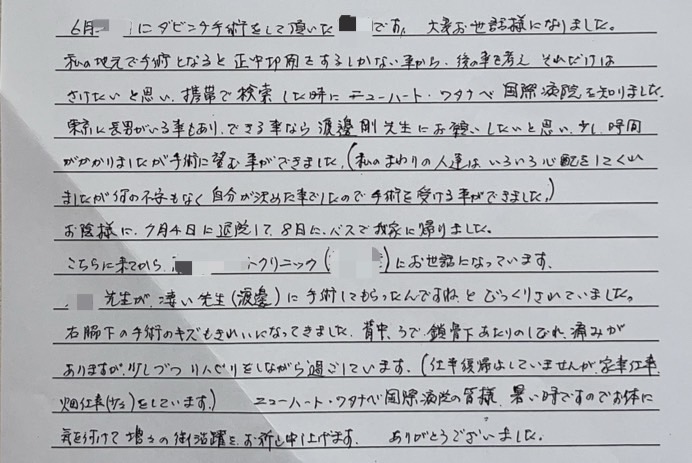 6月 にダビンチ手術をして頂いた です。 大変お世話様になりました。
私の地元で手術となると正中切開をするしかない事から、後の事を考えそれだけは
さけたいと思い、携帯で検索した時にニューハート・ワタナベ国際病院を知りました。
東京に長男がいる事もあり、できる事なら渡邊剛先生にお願いしたいと思い、少し時間
がかかりましたが手術に望む事ができました。(私のまわりの人達はいろいろ心配をしてくれ
ましたが何の不安もなく自分が決めた事でしたので手術を受ける事ができました。)
お陰様に、7月4日に退院して、8日に、バスで我家に帰りました。
こちらに来てから、 クリニック( )にお世話になっています。
先生が、凄い先生(渡邊)に手術してもらったんですね、とびっくりされていました。
右脇下の手術のキズもきれいになってきました。背中、うで、鎖骨下あたりのしびれ、痛みが
ありますが、少しづつリハビリをしながら過ごしています。(仕事復帰はしていませんが、家事仕事、
畑仕事(少々)をしています。) ニューハート・ワタナベ国際病院の皆様、暑い時ですのでお体に
気を付けて増々の御活躍をお祈り申し上げます。 ありがとうございました。